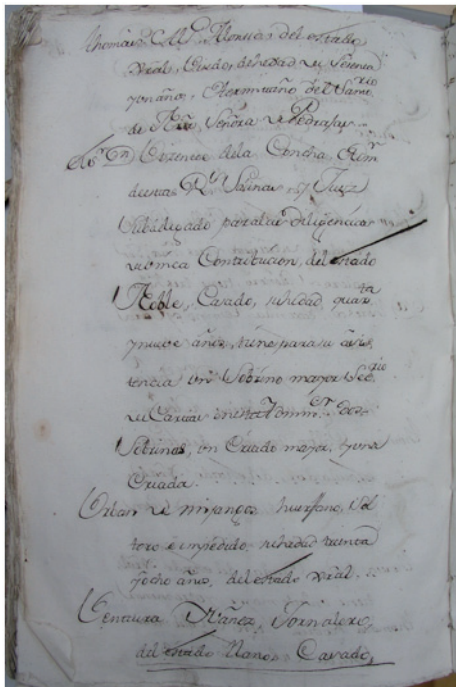 del estado
Viudo, de hedad de setenta
y un años, Hermitaño del Santrio
de Nra Señora de Pedrajas
Dn Vizente de la Concha, Admr
de estas Rs Salinas, y Juez
Subdelegado para las diligencias
de Única Contribucion, del estado
Noble, Casado, de hedad quarta
y nueve años, tiene para su asis
tencia un Sobrino mayor
de Cartas en esta Admmon dos
Sobrinas, un Criado mayor, y una
Criada.
de mijangos huerfano, Sol
tero e impedido, de hedad treinta
y ocho años, del estado Gral.
Ventura Jornalero,
del estado llano, Casado,